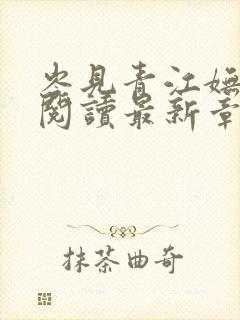 見青江嫵
閱讀最新章
抹茶曲奇